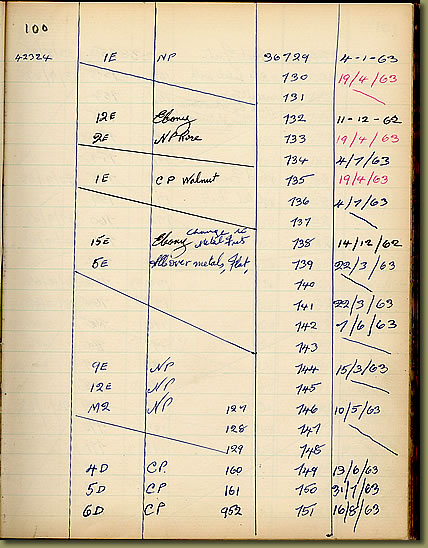 100
42324 1E NP 36729 4-1-63
730 19/4/63
731
12E Ebony 732 11-12-62
2E NP Rose 733 19/4/63
734 4/7/63
1E CP Walnut 735 19/4/63
736 4/7/63
737
change to
15E Ebony metal Frets 738 14/12/62
5E All over metal, Flat, 739 22/3/63
740
741 22/3/63
742 7/6/63
743
9E NP 744 15/3/63
12E NP 745
M2 NP 127 746 10/5/63
128 747
129 748
4D CP. 160 749 13/6/63
5D CP 161 750 31/7/63
6D CP. 952 751 16/8/63